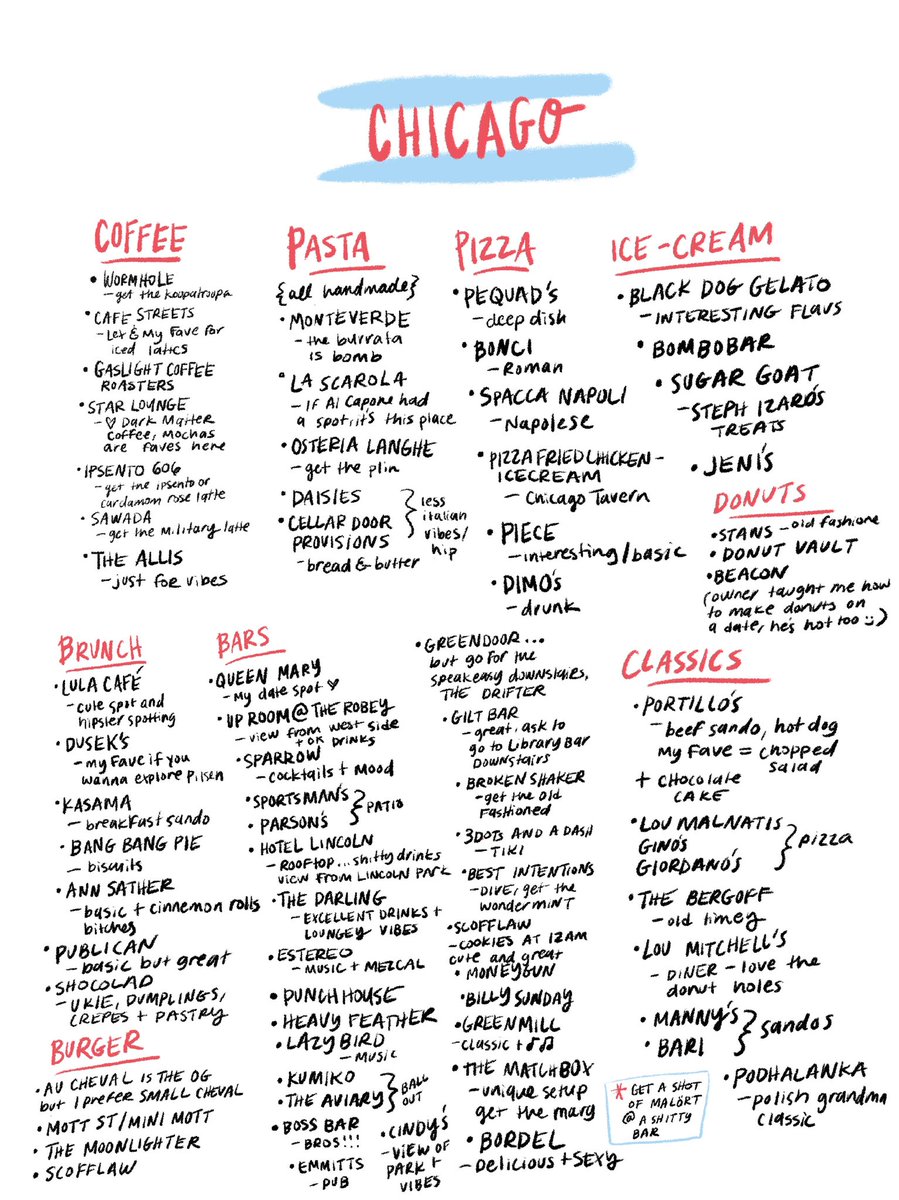 CHICAGO
COFFEE
• WORMHOLE
– get the koopatroopa
• CAFE STREETS
– Lex & My Fave for
iced lattes
• GASLIGHT COFFEE
ROASTERS
• STAR LOUNGE
– ♡ Dark Matter
Coffee, Mochas
are faves here
• IPSENTO 606
– get the ipsento or
cardamom rose latte
• SAWADA
– get the military latte
• THE ALLIS
– just for vibes
PASTA
{all handmade}
• MONTEVERDE
– the burrata
is bomb
• LA SCAROLA
– If Al Capone had
a spot, it's this place
• OSTERIA LANGHE
– get the plin
• DAISIES
• CELLAR DOOR
PROVISIONS
– bread & butter
} less
italian
vibes/
hip
PIZZA
• PEQUAD'S
– deep dish
• BONCI
– Roman
• SPACCA NAPOLI
– Napolese
• PIZZA FRIED CHICKEN –
ICECREAM
– Chicago Tavern
• PIECE
– interesting/basic
• DIMO'S
– drunk
ICE-CREAM
• BLACK DOG GELATO
– INTERESTING FLAVS
• BOMBOBAR
• SUGAR GOAT
– STEPH IZARD'S
TREATS
• JENI'S
DONUTS
• STANS – old fashione
• DONUT VAULT
• BEACON
(owner taught me how
to make donuts on
a date, he's hot too :))
BRUNCH
• LULA CAFÉ
– cute spot and
hipster spotting
• DUSEK'S
– my fave if you
wanna explore Pilsen
• KASAMA
– breakfast sando
• BANG BANG PIE
– biscuits
• ANN SATHER
– basic + cinnemon rolls
bitches
• PUBLICAN
– basic but great
• SHOCOLAD
– UKIE, DUMPLINGS,
CREPES + PASTRY
BURGER
• AU CHEVAL IS THE OG
but I prefer SMALL CHEVAL
• MOTT ST/MINI MOTT
• THE MOONLIGHTER
• SCOFFLAW
BARS
• QUEEN MARY
– My date spot ♡
• UP ROOM @ THE ROBEY
– view from west side
+ OK DRINKS
• SPARROW
– cocktails + mood
• SPORTSMAN'S
• PARSON'S
} PATIO
• HOTEL LINCOLN
– ROOFTOP... shitty drinks
view from LINCOLN PARK
• THE DARLING
– EXCELLENT DRINKS +
LOUNGEY VIBES
• ESTEREO
– MUSIC + MEZCAL
• PUNCH HOUSE
• HEAVY FEATHER
• LAZY BIRD
– MUSIC
• KUMIKO
• THE AVIARY
} BALL
OUT
• BOSS BAR
– BROS!!!
• EMMITTS
– PUB
• CINDY'S
– VIEW OF
PARK +
VIBES
• GREENDOOR ...
but go for the
speakeasy downstairs,
THE DRIFTER
• GILT BAR
– great, ask to
go to Library Bar
Downstairs
• BROKEN SHAKER
– get the Old
Fashioned
• 3 DOTS AND A DASH
– TIKI
• BEST INTENTIONS
– DIVE, get the
wondermint
• SCOFFLAW
– COOKIES AT 12AM
cute and great
• MONEYGUN
• BILLY SUNDAY
• GREENMILL
– classic + ♫♫
• THE MATCHBOX
– unique setup
get the mary
• BORDEL
– Delicious + SEXY
CLASSICS
• PORTILLO'S
– beef sando, hot dog
My fave = chopped
salad
+ CHOCOLATE
CAKE
• LOU MALNATIS
GINO'S
GIORDANO'S
} pizza
• THE BERGOFF
– old timey
• LOU MITCHELL'S
– DINER – love the
donut holes
• MANNY'S
• BARI
} sandos
• PODHALANKA
– polish grandma
classic
* GET A SHOT
OF MALÖRT
@ A SHITTY
BAR